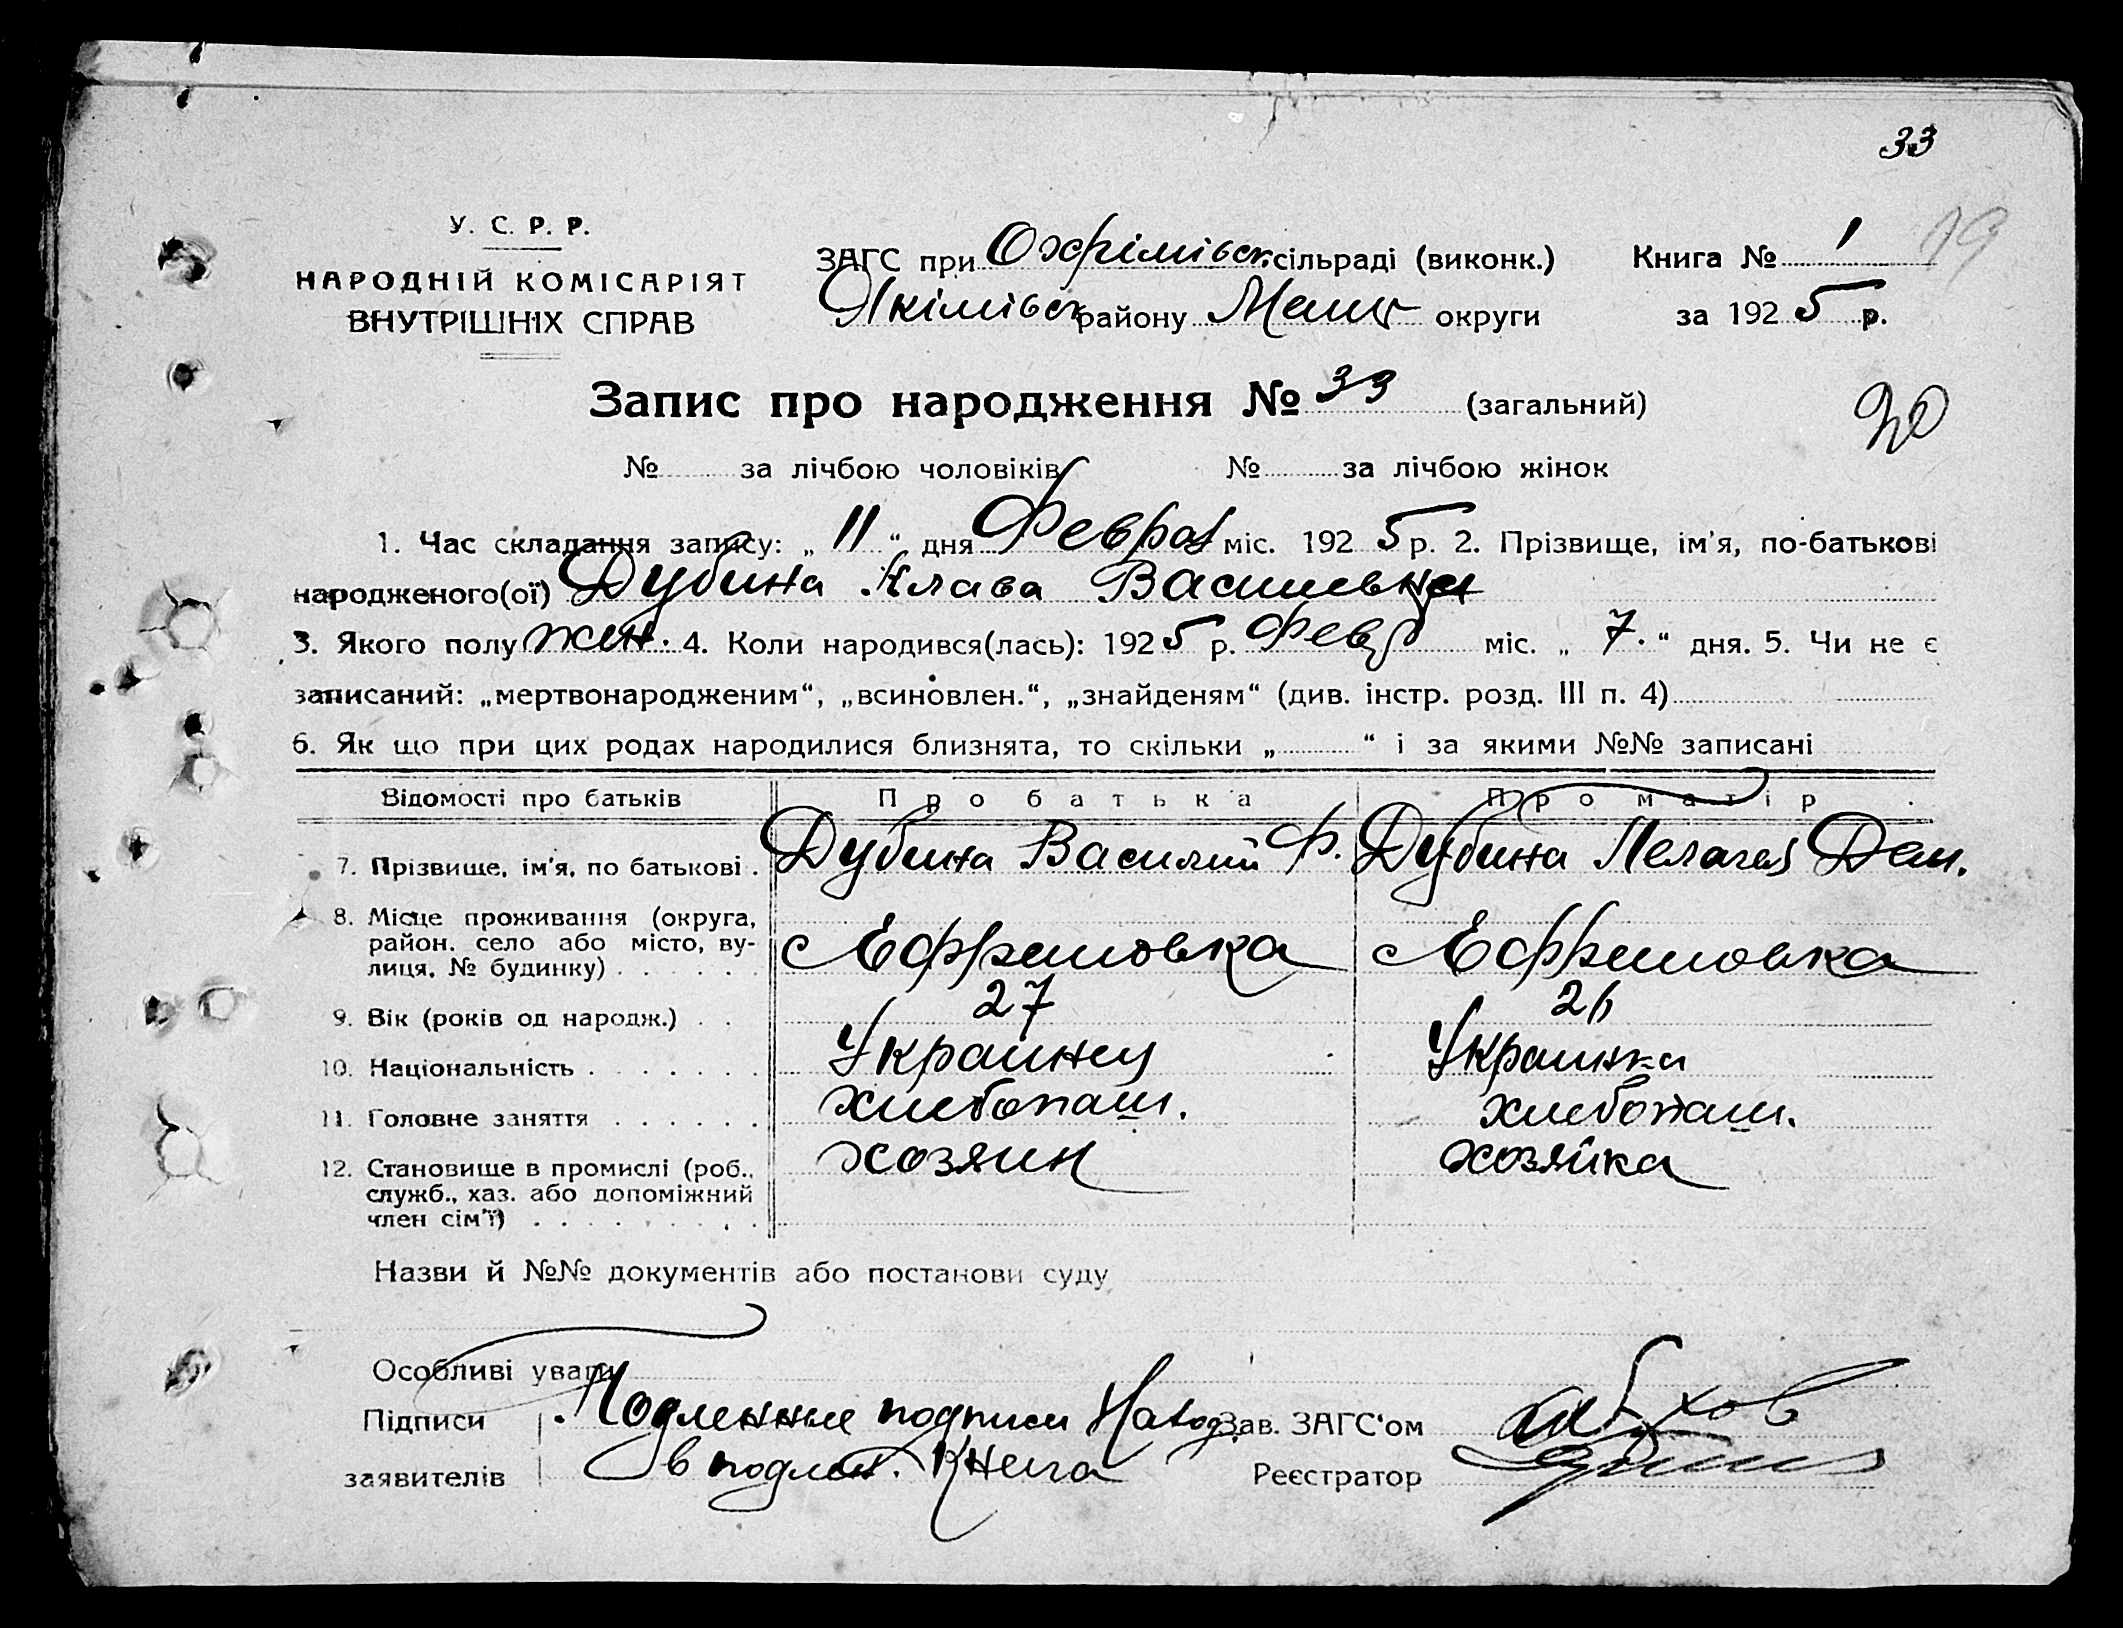 33
У. С. Р. Р.
НАРОДНІЙ КОМІСАРІЯТ
ВНУТРІШНІХ СПРАВ
ЗАГС при Охрімівск. сільраді (виконк.) Книга № 1 19
Якімівск району Мелит округи за 1925 р.
Запис про народження № 33 (загальний)
20
№ за лічбою чоловіків № за лічбою жінок
1. Час складання запису: „ 11 “ дня Феврал міс. 1925 р. 2. Прізвище, ім'я, по-батькові
народженого(ої) Дубина Клава Васильевна
3. Якого полу жен. 4. Коли народився(лась): 1925 р. Февр міс. „ 7. “ дня. 5. Чи не є
записаний: „мертвонародженим“, „всиновлен.“, „знайденям“ (див. інстр. розд. III п. 4)
6. Як що при цих родах народилися близнята, то скільки „ “ і за якими №№ записані
Відомості про батьків Про батька Про матір
7. Прізвище, ім'я, по батькові . Дубина Василий Ф. Дубина Пелагея Дем.
8. Місце проживання (округа,
район. село або місто, ву-
лиця, № будинку) . . . . . с Ефремовка с Ефремовка
9. Вік (років од народж.) . . 27 26
10. Національність . . . . . . . Украинец Украинка
11. Головне заняття . . . . . . хлебопаш. хлебопаш.
12. Становище в промислі (роб.,
служб., хаз. або допоміжний
член сім'ї) . . . . . . . . хозяин хозяйка
Назви й №№ документів або постанови суду
Особливі уваги
Підписи Подленные подписи Наход. Зав. ЗАГС'ом
заявителів в подлен. Книга Реєстратор